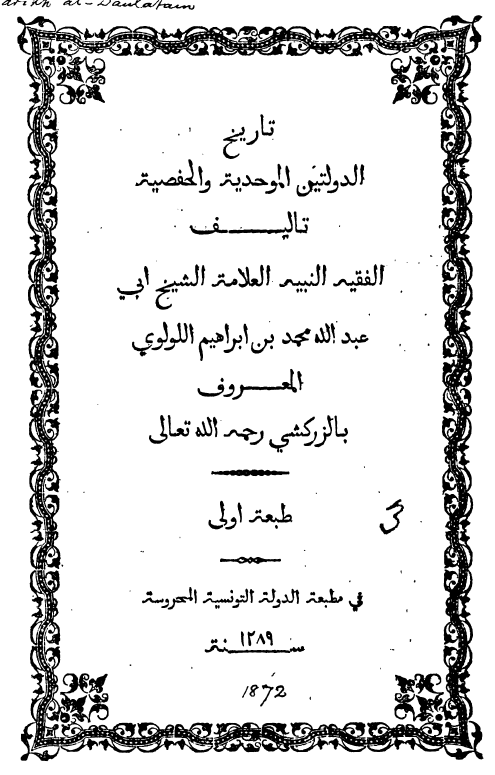 al-Daulatain
تاريخ
الدولتين الموحدية والحفصية
تاليف
الفقيه النبيه العلامة الشيخ ابي
عبد الله محمد بن ابراهيم اللولوي
المعروف
بالزركشي رحمه الله تعالى
طبعة اولى
في مطبعة الدولة التونسية المحروسة
سنة ١٢٨٩
1872